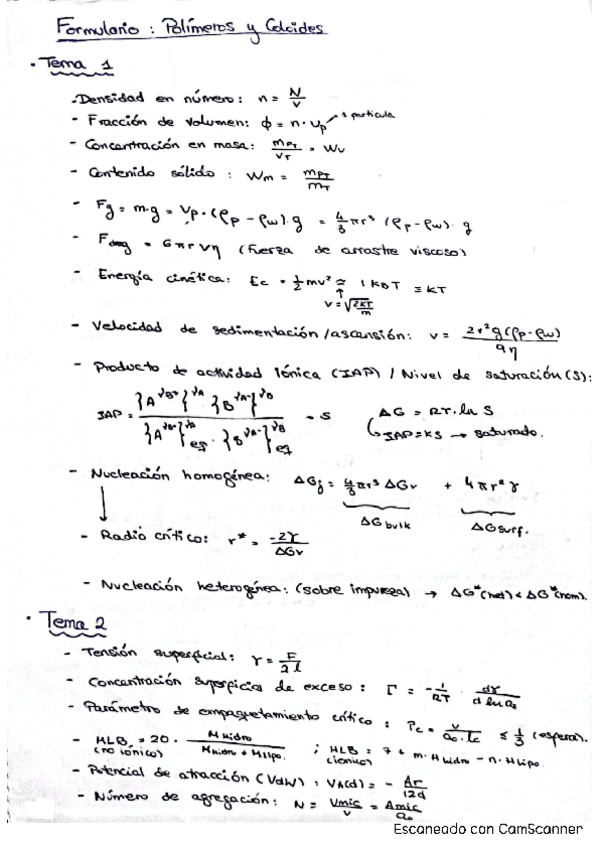 Formulario: Polímeros y Coloides
· Tema 1
- Densidad en número: n = N/V
- Fracción de volumen: ϕ = n · Vp → 1 partícula
- Concentración en masa: mPT/VT = Wv
- Contenido sólido: Wm = mPT/mT
- Fg = m·g = Vp · (ρp - ρw) · g = 4/3 πr³ (ρp - ρw) · g
- Fdrag = 6πrvη (fuerza de arrastre viscoso)
- Energía cinética: Ec = 1/2 mv² ≃ 1 KBT ≡ KT
v = √(2KT/m)
- Velocidad de sedimentación/ascensión: v = 2r²g(ρp - ρw)/9η
- Producto de actividad iónica (IAP) / Nivel de saturación (S):
IAP = {A^νB+}^νA · {B^νA-}^νB / {A^νB+}^νA eq · {B^νA-}^νB eq = S
ΔG = RT·ln S
IAP = KS → saturado.
- Nucleación homogénea: ΔGj = 4/3 πr³ ΔGv + 4πr²γ
ΔGbulk ΔGsurf.
- Radio crítico: r* = -2γ/ΔGv
- Nucleación heterogénea: (sobre impureza) → ΔG*(het) < ΔG*(hom).
· Tema 2
- Tensión superficial: γ = F/2l
- Concentración superficial de exceso: Γ = -1/RT · dγ/d ln a₀
- Parámetro de empaquetamiento crítico: Pc = v/a₀·lc ≤ 1/3 (esfera).
- HLB (no iónico) = 20 · MHidro/MHidro + MLipo ; HLB (iónico) = 7 + m·HHidro - n·HLipo
- Potencial de atracción (VdW): VA(d) = - Ar/12d
- Número de agregación: N = Vmic/v = Amic/a₀
Escaneado con CamScanner